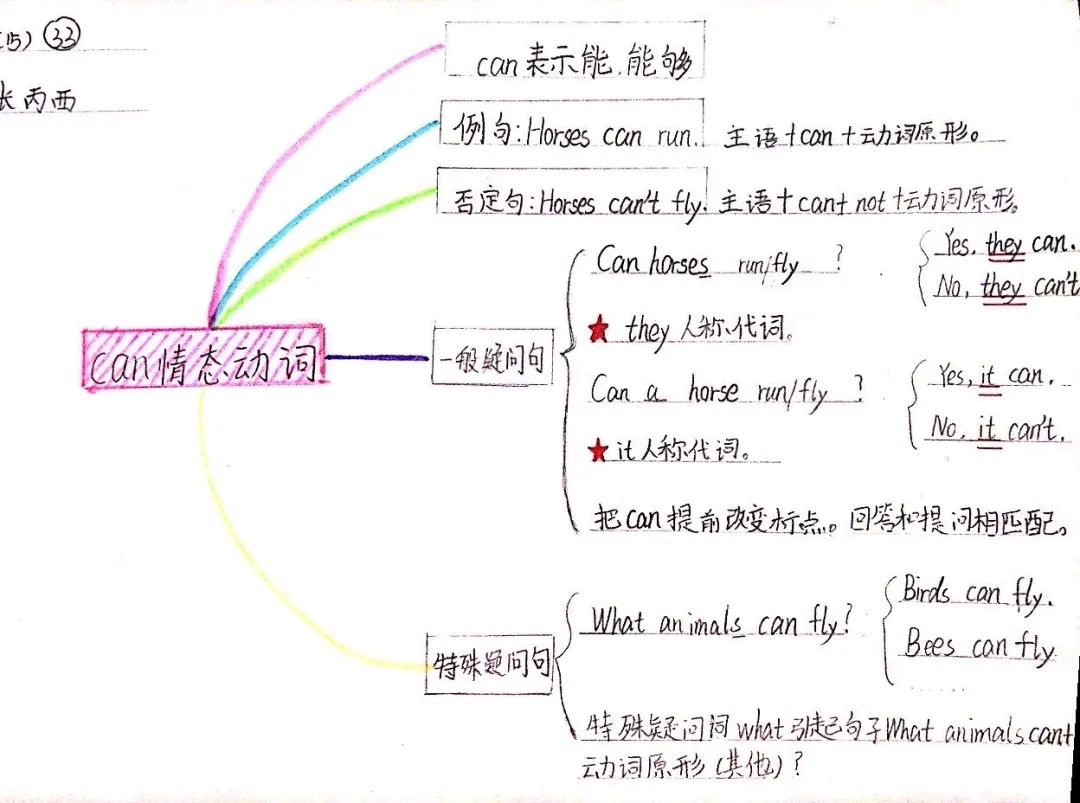 (15) 33
张丙西
can 表示能,能够
例句:Horses can run. 主语+can+动词原形。
否定句:Horses can't fly. 主语+can+not+动词原形。
can情态动词
一般疑问句
Can horses run/fly ?
Yes, they can.
No, they can't
★ they 人称代词。
Can a horse run/fly ?
Yes, it can.
No, it can't.
★ it人称代词。
把can提前改变标点。回答和提问相匹配。
特殊疑问句
What animals can fly?
Birds can fly.
Bees can fly
......
特殊疑问词what引起句子What animals can+
动词原形(其他)?